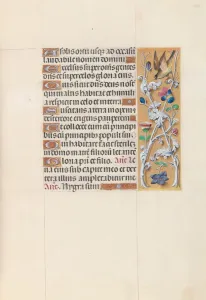 solis ortu usq; ad occasū
laudabile nomen domini
Excelsus super omnes gentes
dñs et super celos gloria eius
Quis sicut dñs deus nost
qui in altis habitat et humilia
respicit in celo et in terra
Suscitans a terra inopem
et de stercore erigens pauperem
Ut collocet eum cū principi
bus cū principibus populi sui
Qui habitare facit sterilez
in domo matrē filiorū letantē
Gloria patri et filio. Añt.
leua eius sub capite meo et dex
tera illius amplexabitur me
Añt. Nigra sum